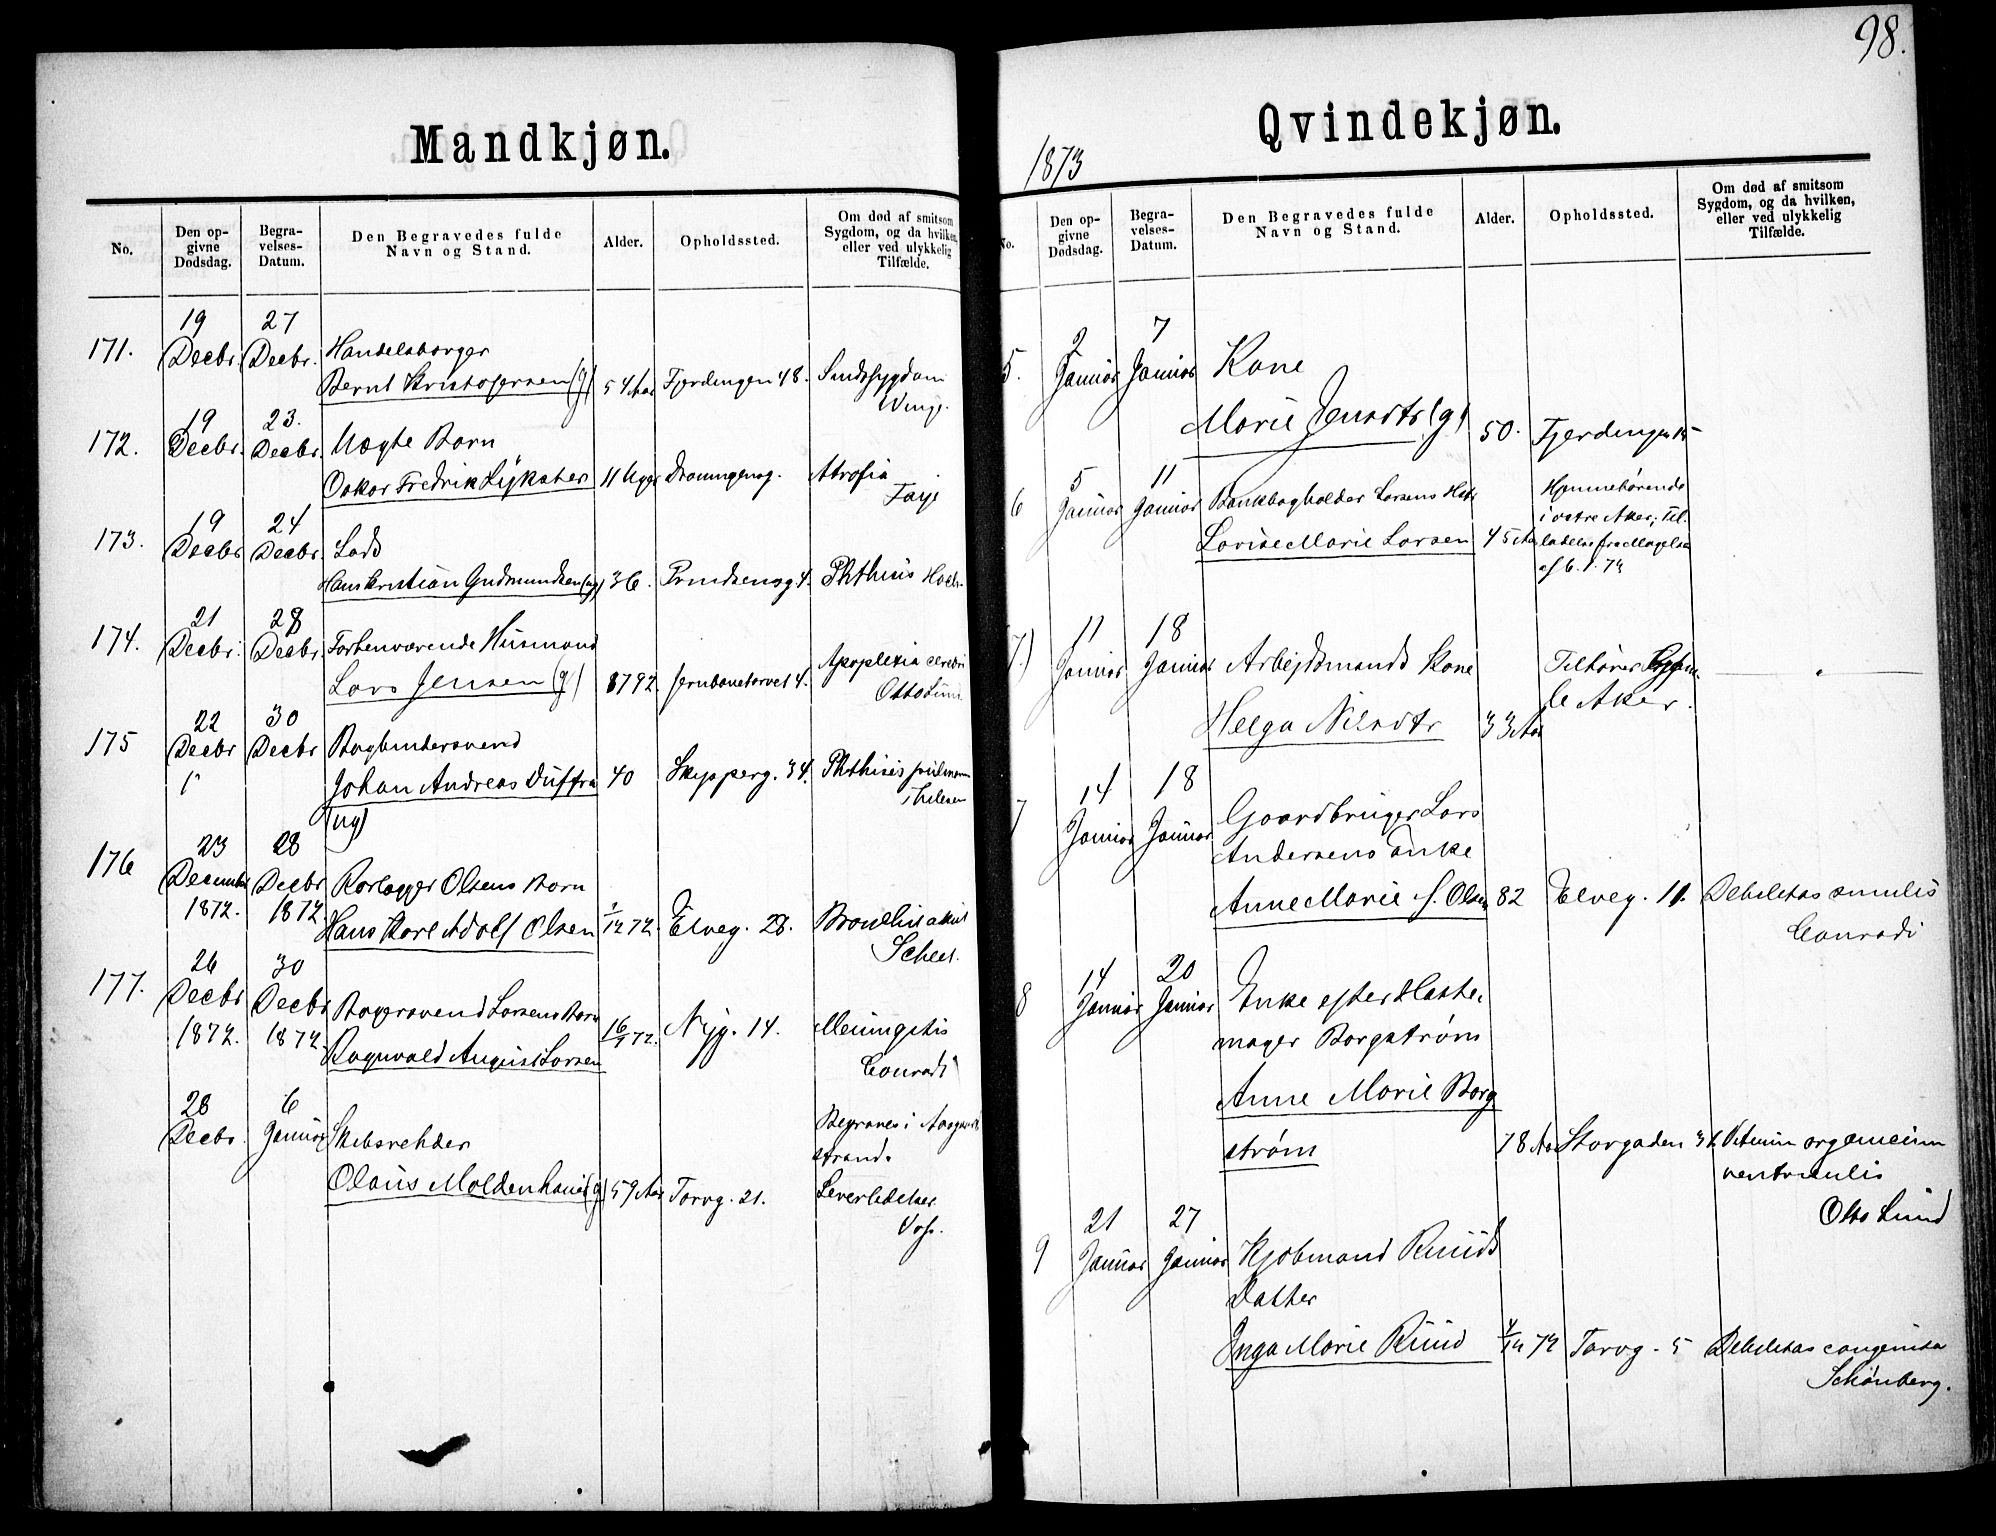 98.
Mandkjøn.
No.
Den opgivne Dødsdag.
Begravelses-Datum.
Den Begravedes fulde Navn og Stand.
Alder.
Opholdssted.
Om død af smitsom Sygdom, og da hvilken, eller ved ulykkelig Tilfælde.
171.
19 Decbr.
27 Decbr.
Handelsborger
Bernt Kristofersen (g)
54 Aar
Fjerdingen 48.
Sindssygdom
Winge.
172.
19 Decbr.
23. Decbr.
Vægte Barn
Oskar Fredrik Lykster
11 Uger
Dronningensg.
Atrofia
Faye
173.
19 Decbr
24 Decbr.
Lods
Hans Kristian Gudmundsen (ug)
36.
Prindsensg 4.
Phthisis
174.
21 Decbr.
28 Decbr.
Forhenværende Husmand
Lars Jensen (g)
8792.
Jernbanetorvet 4.
Apoplexia cerebri
Otto Lund
175
22 Decbr
30 Decbr
Bogbindersvend
Johan Andreas
(ug)
40
Skipperg. 34.
Phthisis pulmon
176
23 December 1872.
28 Decbr 1872.
Rorlægger Olsens Barn
Hans Karl Adolf Olsen
1/12 72.
Elveg. 28.
Bronchit akut
Scheel.
177.
26 Decbr 1872.
30 Decbr 1872.
Bagersvend Larsens Barn
Ragnvald August Larsen
16/9 72.
Nyg. 14.
Meningitis
Conradi
28 Decbr.
6 Januar
Skibsrehder
Olaus Moldenhauer (g)
59 Aar
Torvg. 21.
Begraves i Aasgaardstrand.
Leverlidelser
Voss.
1873
Qvindekjøn.
No.
Den opgivne Dødsdag.
Begravelses-Datum.
Den Begravedes fulde Navn og Stand.
Alder.
Opholdssted.
Om død af smitsom Sygdom, og da hvilken, eller ved ulykkelig Tilfælde.
5.
2 Januar
7 Januar
Kone
Marie Jensdtr (g)
50.
Fjerdingen 15
6
5 Januar
11 Januar
Bankbogholder Larsens Hstr
Lovise Marie Larsen
45 Aar
Hjemmehørende
i vestre Aker; Til.
ladelse fra
af 6. 1. 73
7.)
11 Januar
18 Januar
Arbejdsmands Kone
Helga Nilsdtr
33 Aar
Tilhører
le Aker.
"
7
14 Januar
18 Januar
Gaardbruger Lars
Andersens Enke
Anne Marie S. Olsen
82
Elveg. 11.
Debilitas senilis
Conradi
8
14 Januar
20 Januar
Enke efter Hatte-
mager Borgstrøm
Anne Marie Borg
strøm
78 Aar
Storgaden 32
Vitium organicum
ventriculis
Otto Lund
9
21 Januar
27 Januar
Kjøbmand Ruuds
Datter
Inga Marie Ruud
Torvg. 5
Debilitas congenita
Schønberg.